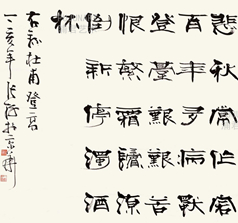 悲秋常作客
百年多病獨
登臺艱難苦
恨繁霜鬢潦
倒新停濁酒
杯
右录杜甫登高
亥年 於京華